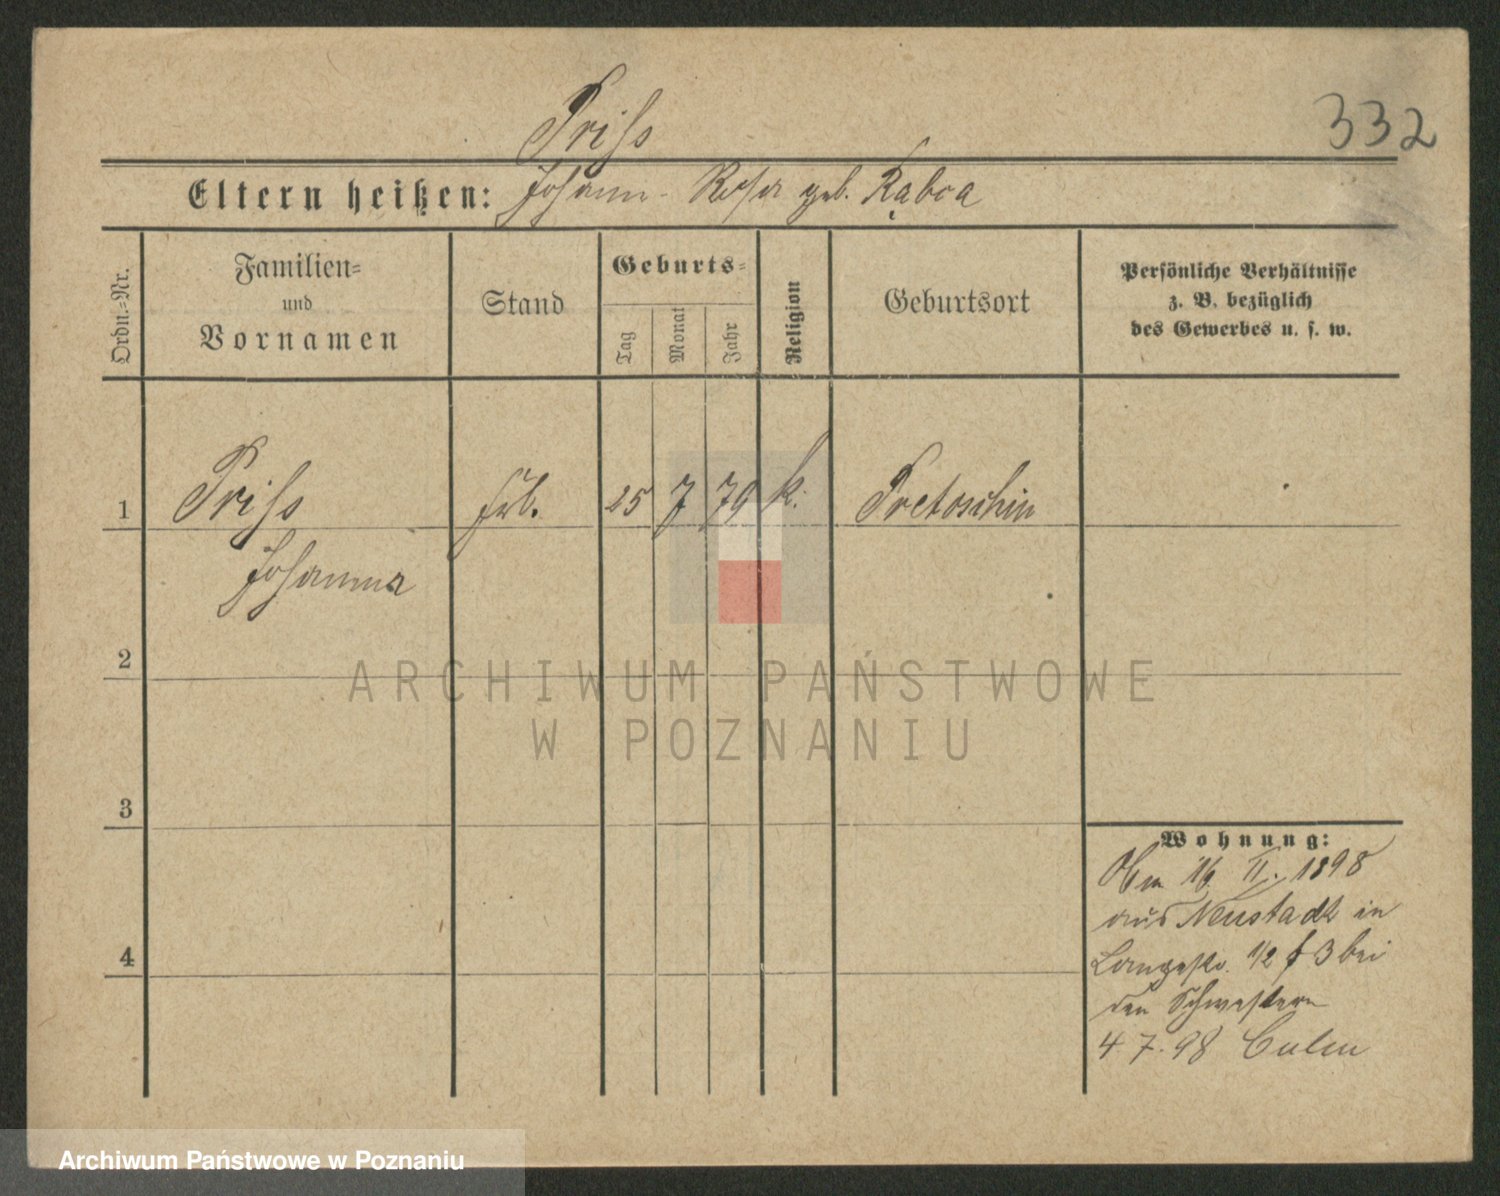 332
Priss
Eltern heißen: Johann - Rosa geb. Rąbca
Ordn.-Nr.
Familien-
und
Vornamen
Stand
Geburts-
Tag
Monat
Jahr
Religion
Geburtsort
Persönliche Verhältnisse
z. B. bezüglich
des Gewerbes u. s. w.
1 Priss frl. 25 7 79 k. Pretoschin
Johanna
2
3
4
Wohnung:
16. II. 1898
aus Neustadt in
Langestr. 1/2 f 3 bei
den Schwestern
4. 7. 98 Culm
ARCHIWUM PAŃSTWOWE
W POZNANIU
Archiwum Państwowe w Poznaniu